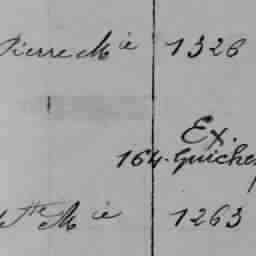 Pierre M ie 1326
Ex.
164. Guiche
Ste M ie 1263